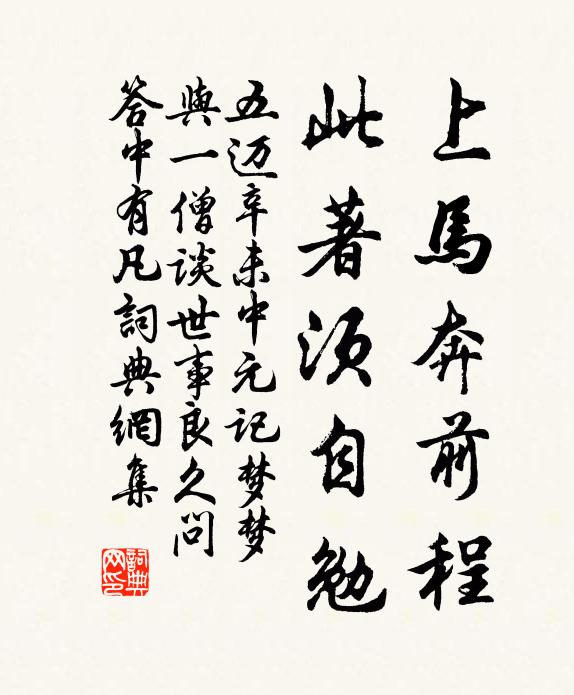 上馬奔前程
此著須自勉
五迈辛未中元记梦梦
與一僧談世事良久問
答中有凡詞典網集
詞典
网印